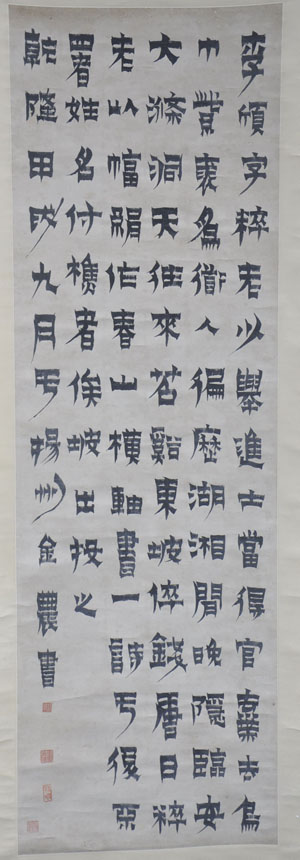 李頎字粹老少舉進士當得官棄去為
巾裘為道人徧歷湖湘間晚隱臨安
大滌洞天往來苕谿東坡倅錢唐日粹
老以幅絹作春山橫軸書一詩于後不
署姓名付樵者俟坡出投之
乾隆甲戌九月于揚州金農書